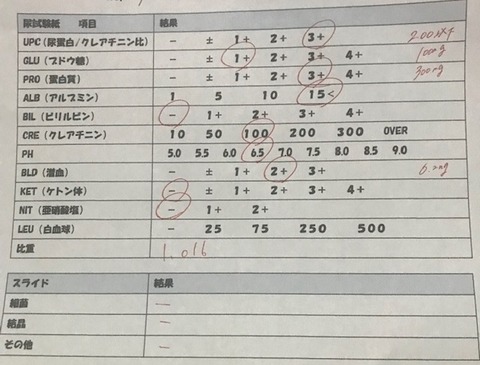 尿試験紙 項目 結果
UPC（尿蛋白/クレアチニン比） － ± 1+ 2+ 3+ 2.00以上
GLU（ブドウ糖） － ± 1+ 2+ 3+ 4+ 100mg
PRO（蛋白質） － ± 1+ 2+ 3+ 4+ 300mg
ALB（アルブミン） 1 5 10 15<
BIL（ビリルビン） － 1+ 2+ 3+ 4+
CRE（クレアチニン） 10 50 100 200 300 OVER
PH 5.0 5.5 6.0 6.5 7.0 7.5 8.0 8.5 9.0
BLD（潜血） － ± 1+ 2+ 3+
KET（ケトン体） － ± 1+ 2+ 3+ 4+
NIT（亜硝酸塩） － 1+ 2+
LEU（白血球） － 25 75 250 500
比重 1.016
スライド 結果
細菌 －
結晶 －
その他 －